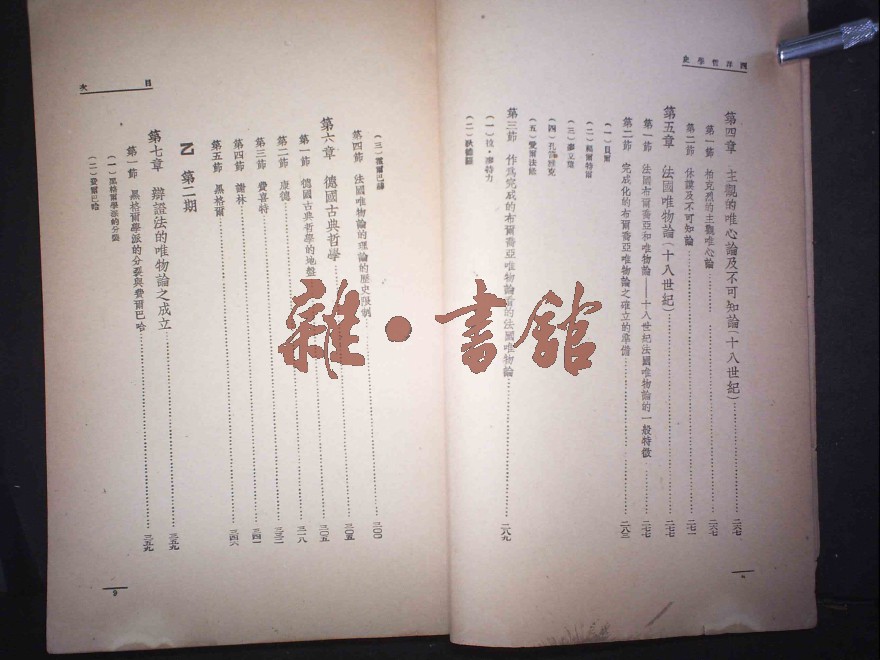 西洋哲學史
第四章 主觀的唯心論及不可知論(十八世紀)……二六七
第一節 柏克烈的主觀唯心論……二六七
第二節 休謨及不可知論……二七一
第五章 法國唯物論(十八世紀)……二七七
第一節 法國布爾喬亞和唯物論——十八世紀法國唯物論的一般特徵……二七七
第二節 完成化的布爾喬亞唯物論之確立的準備……二八三
(一)貝爾
(二)福爾特爾
(三)廖立葉
(四)孔
(五)愛爾法修
第三節 作爲完成的布爾喬亞唯物論者的法國唯物論……二八九
(一)拉·廖特力
(二)狄德羅
八
目次
(三)霍爾巴赫
第四節 法國唯物論的理論的歷史限制……三〇〇
第六章 德國古典哲學……三〇五
第一節 德國古典哲學的地盤……三〇五
第二節 康德……三一八
第三節 費喜特……三三一
第四節 謝林……三四一
第五節 黑格爾……三四六
乙 第二期
第七章 辯證法的唯物論之成立……三五九
第一節 黑格爾學派的分裂與費爾巴哈……三五九
(一)黑格爾學派的分裂
(二)費爾巴哈
9
雜·書館